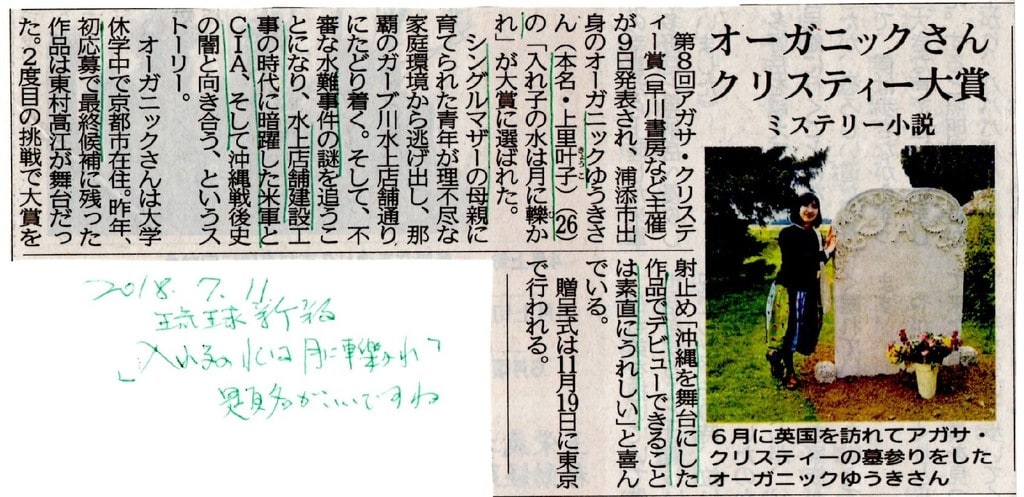 オーガニックさん
クリスティー大賞
ミステリー小説
第８回アガサ・クリステ
ィー賞（早川書房など主催）
が９日発表され、浦添市出
身のオーガニックゆうきさ
ん（本名・上里叶子）（26）
きょうこ
の「入れ子の水は月に轢か
れ」が大賞に選ばれた。
シングルマザーの母親に
育てられた青年が理不尽な
家庭環境から逃げ出し、那
覇のガーブ川水上店舗通り
にたどり着く。そして、不
審な水難事件の謎を追うこ
とになり、水上店舗建設工
事の時代に暗躍した米軍と
ＣＩＡ、そして沖縄戦後史
の闇と向き合う、というス
トーリー。
オーガニックさんは大学
休学中で京都市在住。昨年、
初応募で最終候補に残った
作品は東村高江が舞台だっ
た。２度目の挑戦で大賞を
射止め「沖縄を舞台にした
作品でデビューできること
は素直にうれしい」と喜ん
でいる。
贈呈式は11月19日に東京
で行われる。
６月に英国を訪れてアガサ・
クリスティーの墓参りをした
オーガニックゆうきさん
2018.7.11
琉球新報
「入れ子の水は月に轢かれ」
題名がいいですね